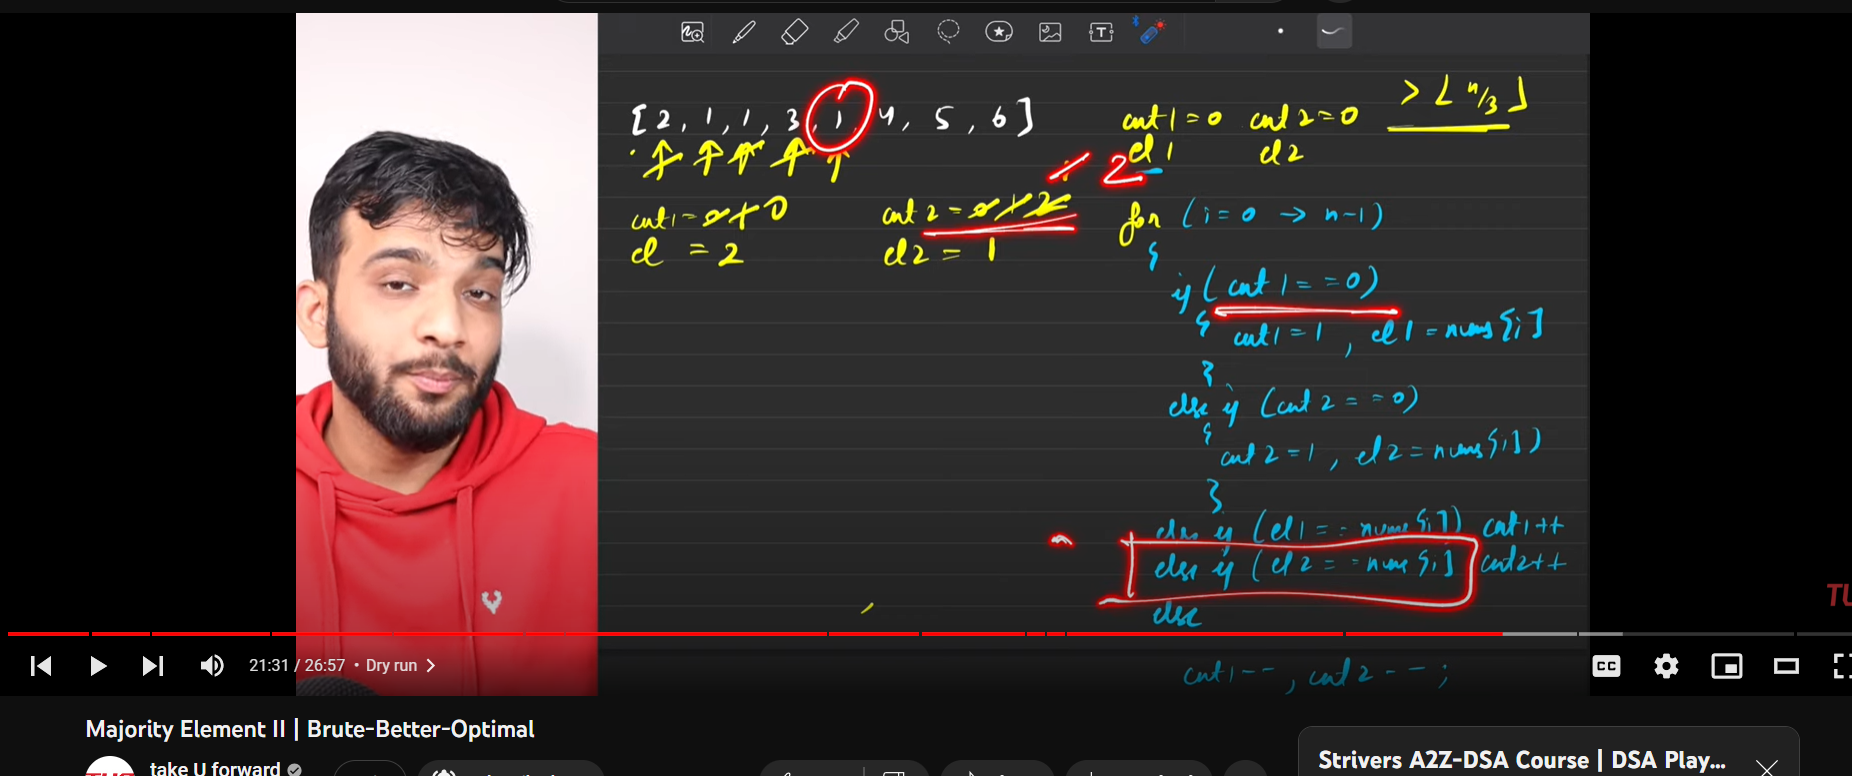 [2, 1, 1, 3, 1, 4, 5, 6]
cnt1=0 cnt2=0 > ⌊n/3⌋
el1 el2
2
cnt1=0 1 0 cnt2=0 1 2
el = 2 el2 = 1
for (i=0 → n-1)
{
if (cnt1==0)
{ cnt1=1, el1=nums[i]
}
else if (cnt2==0)
{
cnt2=1, el2=nums[i])
}
else if (el1==nums[i]) cnt1++
else if (el2==nums[i] cnt2++
else
cnt1--, cnt2--;
21:31 / 26:57 • Dry run >
CC
Majority Element II | Brute-Better-Optimal
take U forward
Strivers A2Z-DSA Course | DSA Play...